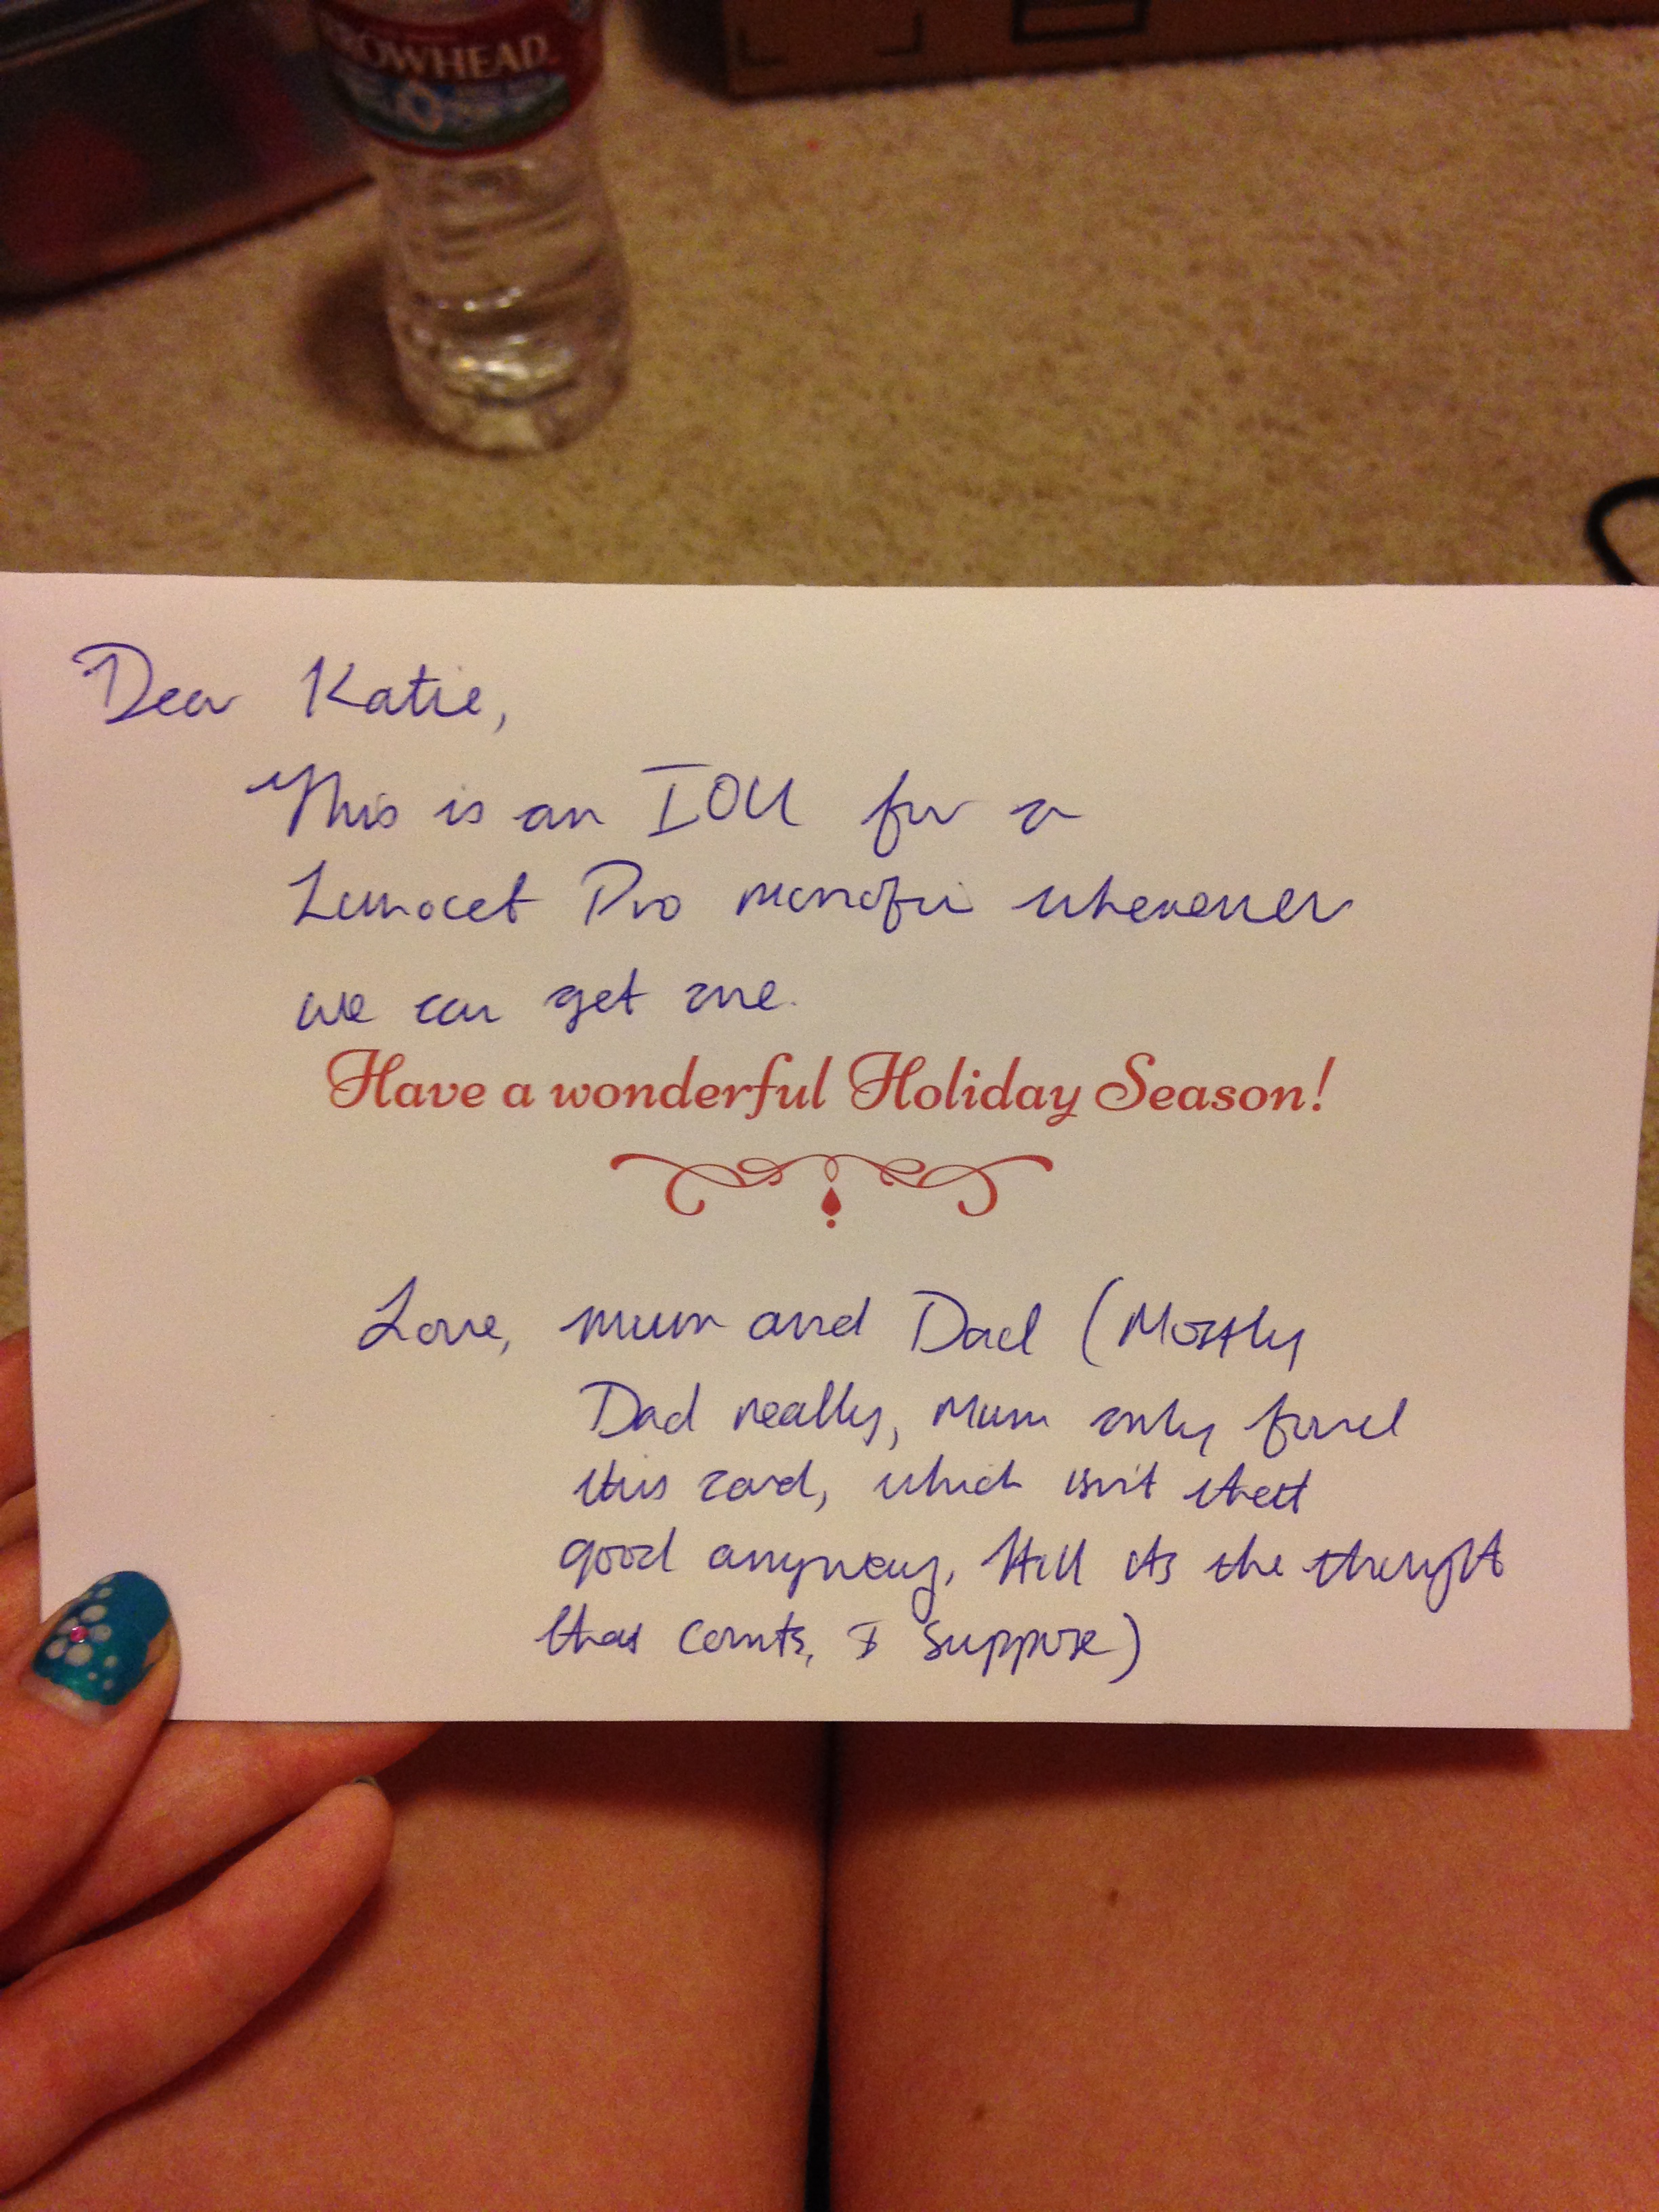 ROWHEAD
Dear Katie,
This is an IOU for a
Lumocet Pro whenever
we can get one.
Have a wonderful Holiday Season!
Love, Mum and Dad (Mostly
Dad really, Mum only found
this card, which isn't that
good anyway, still its the thought
that counts, I suppose)